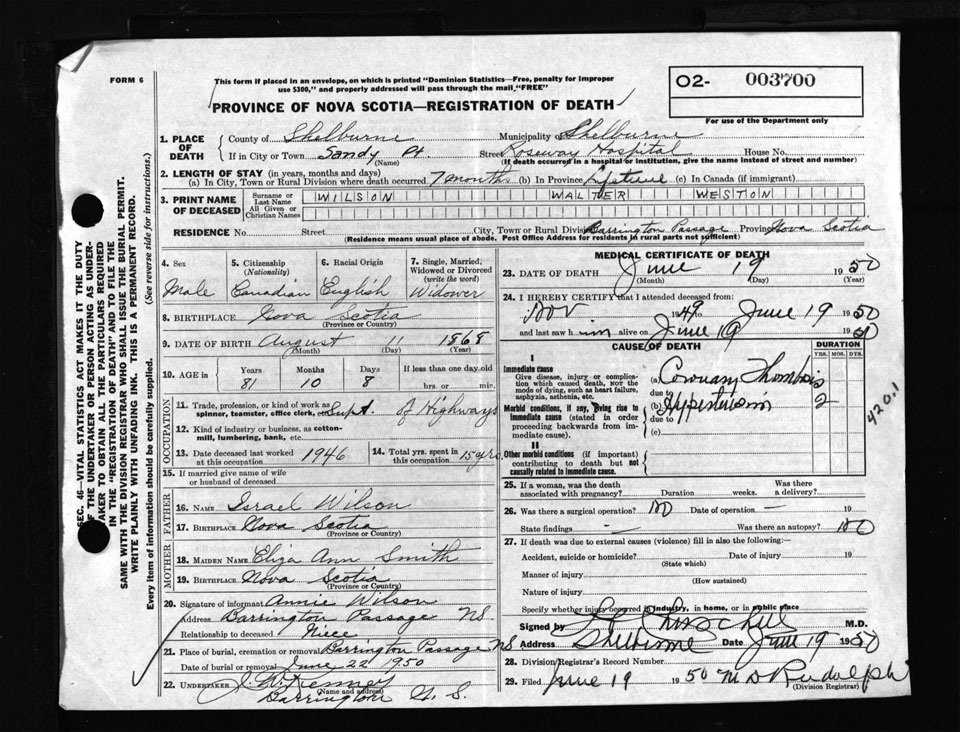 FORM 6
This form if placed in an envelope, on which is printed "Dominion Statistics—Free, penalty for improper
use $300," and properly addressed will pass through the mail "FREE"
PROVINCE OF NOVA SCOTIA—REGISTRATION OF DEATH
O2- 003700
For use of the Department only
1. PLACE OF DEATH
County of Shelburne Municipality of Shelburne
If in City or Town Sandy Pt. Street Roseway Hospital House No.
(Name) (If death occurred in a hospital or institution, give the name instead of street and number)
2. LENGTH OF STAY (in years, months and days)
(a) In City, Town or Rural Division where death occurred 7 months (b) In Province Lifetime (c) In Canada (if immigrant)
3. PRINT NAME OF DECEASED
Surname or Last Name WILSON WALTER WESTON
All Given or Christian Names
RESIDENCE No. Street City, Town or Rural Div. Barrington Passage Province Nova Scotia
(Residence means usual place of abode. Post Office Address for residents in rural parts not sufficient)
4. Sex Male
5. Citizenship (Nationality) Canadian
6. Racial Origin English
7. Single, Married, Widowed or Divorced (write the word) Widower
8. BIRTHPLACE Nova Scotia
(Province or Country)
9. DATE OF BIRTH August 11 1868
(Month) (Day) (Year)
10. AGE in Years Months Days If less than one day old
81 10 8 hrs. or min.
OCCUPATION
11. Trade, profession, or kind of work as spinner, teamster, office clerk, etc. Supt. of Highways
12. Kind of industry or business, as cotton-mill, lumbering, bank, etc.
13. Date deceased last worked at this occupation 1946
14. Total yrs. spent in this occupation 15 yrs.
15. If married give name of wife or husband of deceased
FATHER
16. Name Israel Wilson
17. Birthplace Nova Scotia
(Province or Country)
MOTHER
18. Maiden Name Eliza Ann Smith
19. Birthplace Nova Scotia
(Province or Country)
20. Signature of informant Annie Wilson
Address Barrington Passage NS
Relationship to deceased Niece
21. Place of burial, cremation or removal Barrington Passage NS
Date of burial or removal June 22 1950
22. Undertaker
(Name and address)
Barrington N. S.
MEDICAL CERTIFICATE OF DEATH
23. DATE OF DEATH June 19 1950
(Month) (Day) (Year)
24. I HEREBY CERTIFY that I attended deceased from:
Nov 1949 to June 19 1950
and last saw him alive on June 19 1950
CAUSE OF DEATH
DURATION
YRS. MOS. DYS.
I
Immediate cause
Give disease, injury or complication which caused death, NOT the mode of dying, such as heart failure, asphyxia, asthenia, etc.
(a) Coronary Thombosis
due to
Morbid conditions, if any, giving rise to immediate cause (stated in order proceeding backwards from immediate cause).
(b) Hypertension 2
due to
(c)
420.1
II
Other morbid conditions (if important) contributing to death but not causally related to immediate cause.
25. If a woman, was the death associated with pregnancy? Duration weeks. Was there a delivery?
26. Was there a surgical operation? no Date of operation — 19
State findings — Was there an autopsy? no
27. If death was due to external causes (violence) fill in also the following:—
Accident, suicide or homicide? Date of injury 19
(State which)
Manner of injury
(How sustained)
Nature of injury
Specify whether injury occurred in industry, in home, or in public place
Signed by M.D.
Address Shelburne Date June 19 1950
28. Division Registrar's Record Number
29. Filed June 19 1950 M D Rudolph
(Division Registrar)
SEC. 46—VITAL STATISTICS ACT MAKES IT THE DUTY
OF THE UNDERTAKER OR PERSON ACTING AS UNDER-
TAKER TO OBTAIN ALL THE PARTICULARS REQUIRED
IN THE "REGISTRATION OF DEATH" AND TO FILE THE
SAME WITH THE DIVISION REGISTRAR WHO SHALL ISSUE THE BURIAL PERMIT.
WRITE PLAINLY WITH UNFADING INK. THIS IS A PERMANENT RECORD.
Every item of information should be carefully supplied. (See reverse side for instructions.)